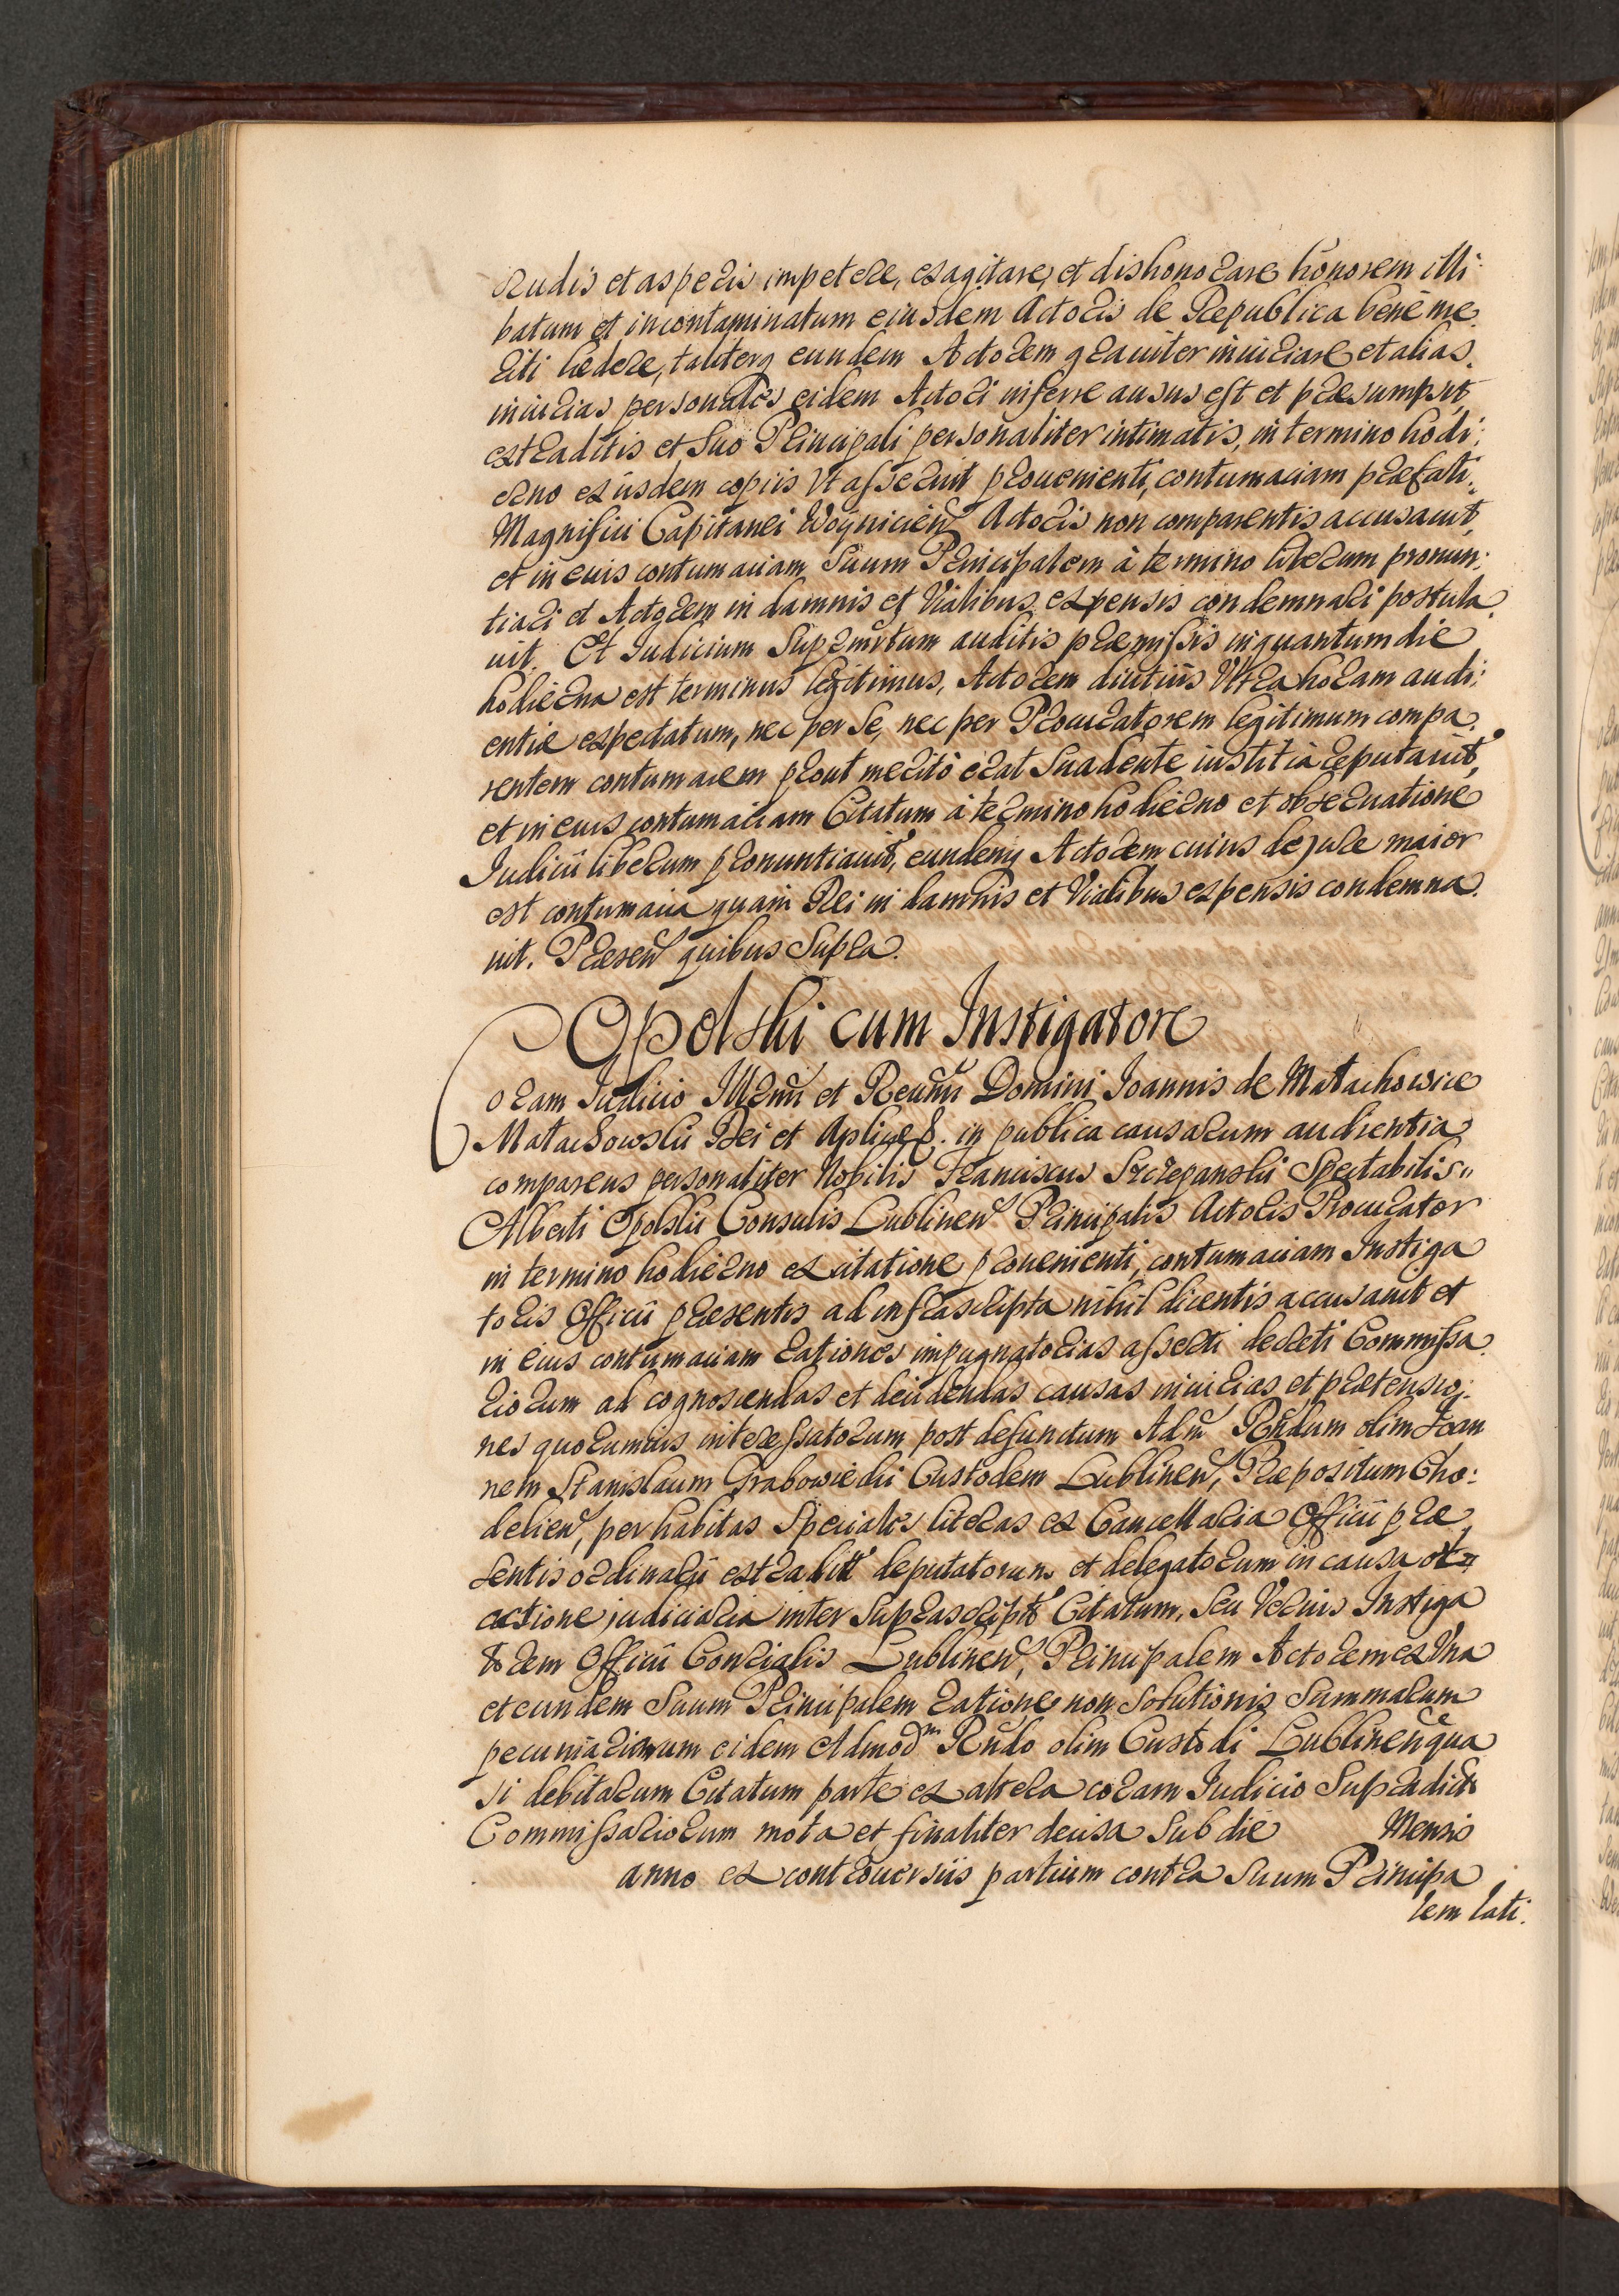 rudis et asperis impetere, exagitare, et dishonorare honorem illi:
batum et incontaminatum eiusdem Actoris de Republica bene me:
riti lædere, taliterq eundem Actorem graviter iniuriare et alias
iniurias personales eidem Actori inferre ausus est et præsumpsit,
extraditis et Suo Principali personaliter intimatis, in termino hodi:
erno ex iisdem copiis Vt asseruit proveniente, contumaciam præfati
Magnifici Capitanei Woynicien Actoris non comparentis accusavit,
et in eius contumaciam Suum Principalem à termino liberum pronun:
tiari et Actorem in damnis et Vialibus expensis condemnari postula
vit. Et Iudicium Supremitum auditis præmissis inquantum die
hodierna est terminus legitimus, Actorem diutius Vltra horam audi:
entiæ expectatum, nec per Se, nec per Procuratorem legitimum compa:
rentem contumacem prout merito erat Suadente iustitia reputavit,
et in eius contumaciam Citatum à termino hodierno et observatione
Iudicii liberum pronuntiavit, eundemq Actorem cuius de jure maior
est contumacia quam Rei in damnis et Vialibus expensis condemna
vit. Præsen quibus Supra.
Opolski cum Instigatore
Coram Iudicio Illmi et Revmi Domini Ioannis de Małachowice
Małachowski Dei et Aplicæ S. in publica causarum audientia
comparens personaliter Nobilis Franciscus Szczepanski Spectabilis
Alberti Opolski Consulis Lublinen Principalis Actoris Procurator
in termino hodierno ex citatione provenienti, contumaciam Instiga
toris Officii præsentis ad infrascripta nihil dicentis accusavit et
in eius contumaciam rationes impugnatorias asserti decreti Commissa
riorum ad cognoscendas et decidendas causas iniurias et prætensio:
nes quorumvis interessatorum post defunctum Adm Rndum olim Ioan
nem Stanislaum Grabowiecki Custodem Lublinen, Præpositum Cho:
delien, per habitas Speciales literas ex Cancellaria Officii præ
sentis ordinarii extradit deputatorum et delegatorum in causa et
actione judiciaria inter Suprascript Citatum, Seu Verius Instiga
torem Officii Consialis Lublinen, Principalem Actorem ex Vna
et eundem Suum Principalem ratione non Solutionis Summarum
pecuniariarum eidem Admodm Rndo olim Custodi Lublinen qua
si debitarum Citatum parte ex altera coram Iudicio Supradict
Commissariorum mota et finaliter decisa Sub die Mensis
anno ex controversiis partium contra Suum Principa
lem lati.